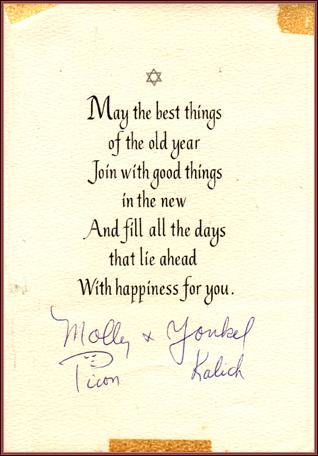 May the best things
of the old year
Join with good things
in the new
And fill all the days
that lie ahead
With happiness for you.
Molly x Yonkel
Picon Kalich